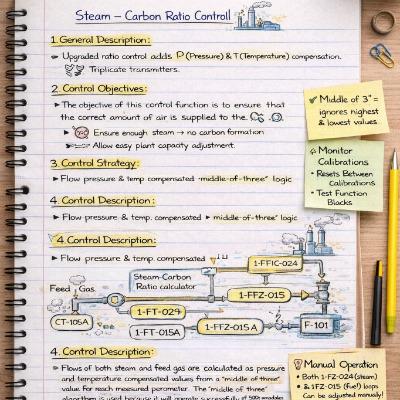 Steam – Carbon Ratio Controll
1. General Description:
Upgraded ratio control adds P (Pressure) & T (Temperature) compensation.
Triplicate transmitters.
2. Control Objectives:
The objective of this control function is to ensure that
the correct amount of air is supplied to the.
Ensure enough steam → no carbon formation
Allow easy plant capacity adjustment.
3. Control Strategy:
Flow pressure & temp compensated "middle-of-three" logic
4. Control Description:
Flow pressure & temp. compensated ▸ middle-of-three" logic
4. Control Description:
Flow pressure & temp compensated
1-FFIC-024
Steam-Carbon
Ratio calculator
Feed Gas
1-FFZ-015
1-FT-024
CT-105A
1-FT-015A
1-FFZ-015A
F-101
4. Control Description:
Flows of both steam and feed gas are calculated as pressure
and temperature compensated values from a "middle of three"
value for each measured perometer. The "middle of three"
algorithm is used because it will operate successfully if
✓ Middle of 3" =
ignores highest
& lowest values
Monitor
Calibrations
• Resets Between
Calibrations
• Test Function
Blocks
Manual Operation
• Both 1-FZ-024 (steam)
& 1FZ-015 (fue!) loops
Can be adjusted manually!